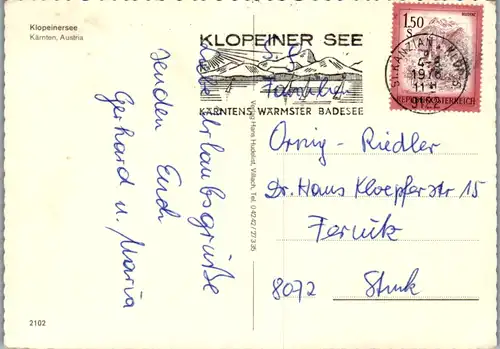 Klopeinersee
Kärnten, Austria
KLOPEINER SEE
KÄRNTENS WÄRMSTER BADESEE
1.50
S
REPUBLIK ÖSTERREICH
ST. KANZIAN
1976
Liebe Urlaubsgrüße
senden Euch
Gerhard u. Maria
Familie
Riedler
Dr. Hans Kloepferstr 15
Fernitz
8072 Stmk
Verlag Hans Hudelist, Villach, Tel. 0 42 42 / 27 3 35
2102